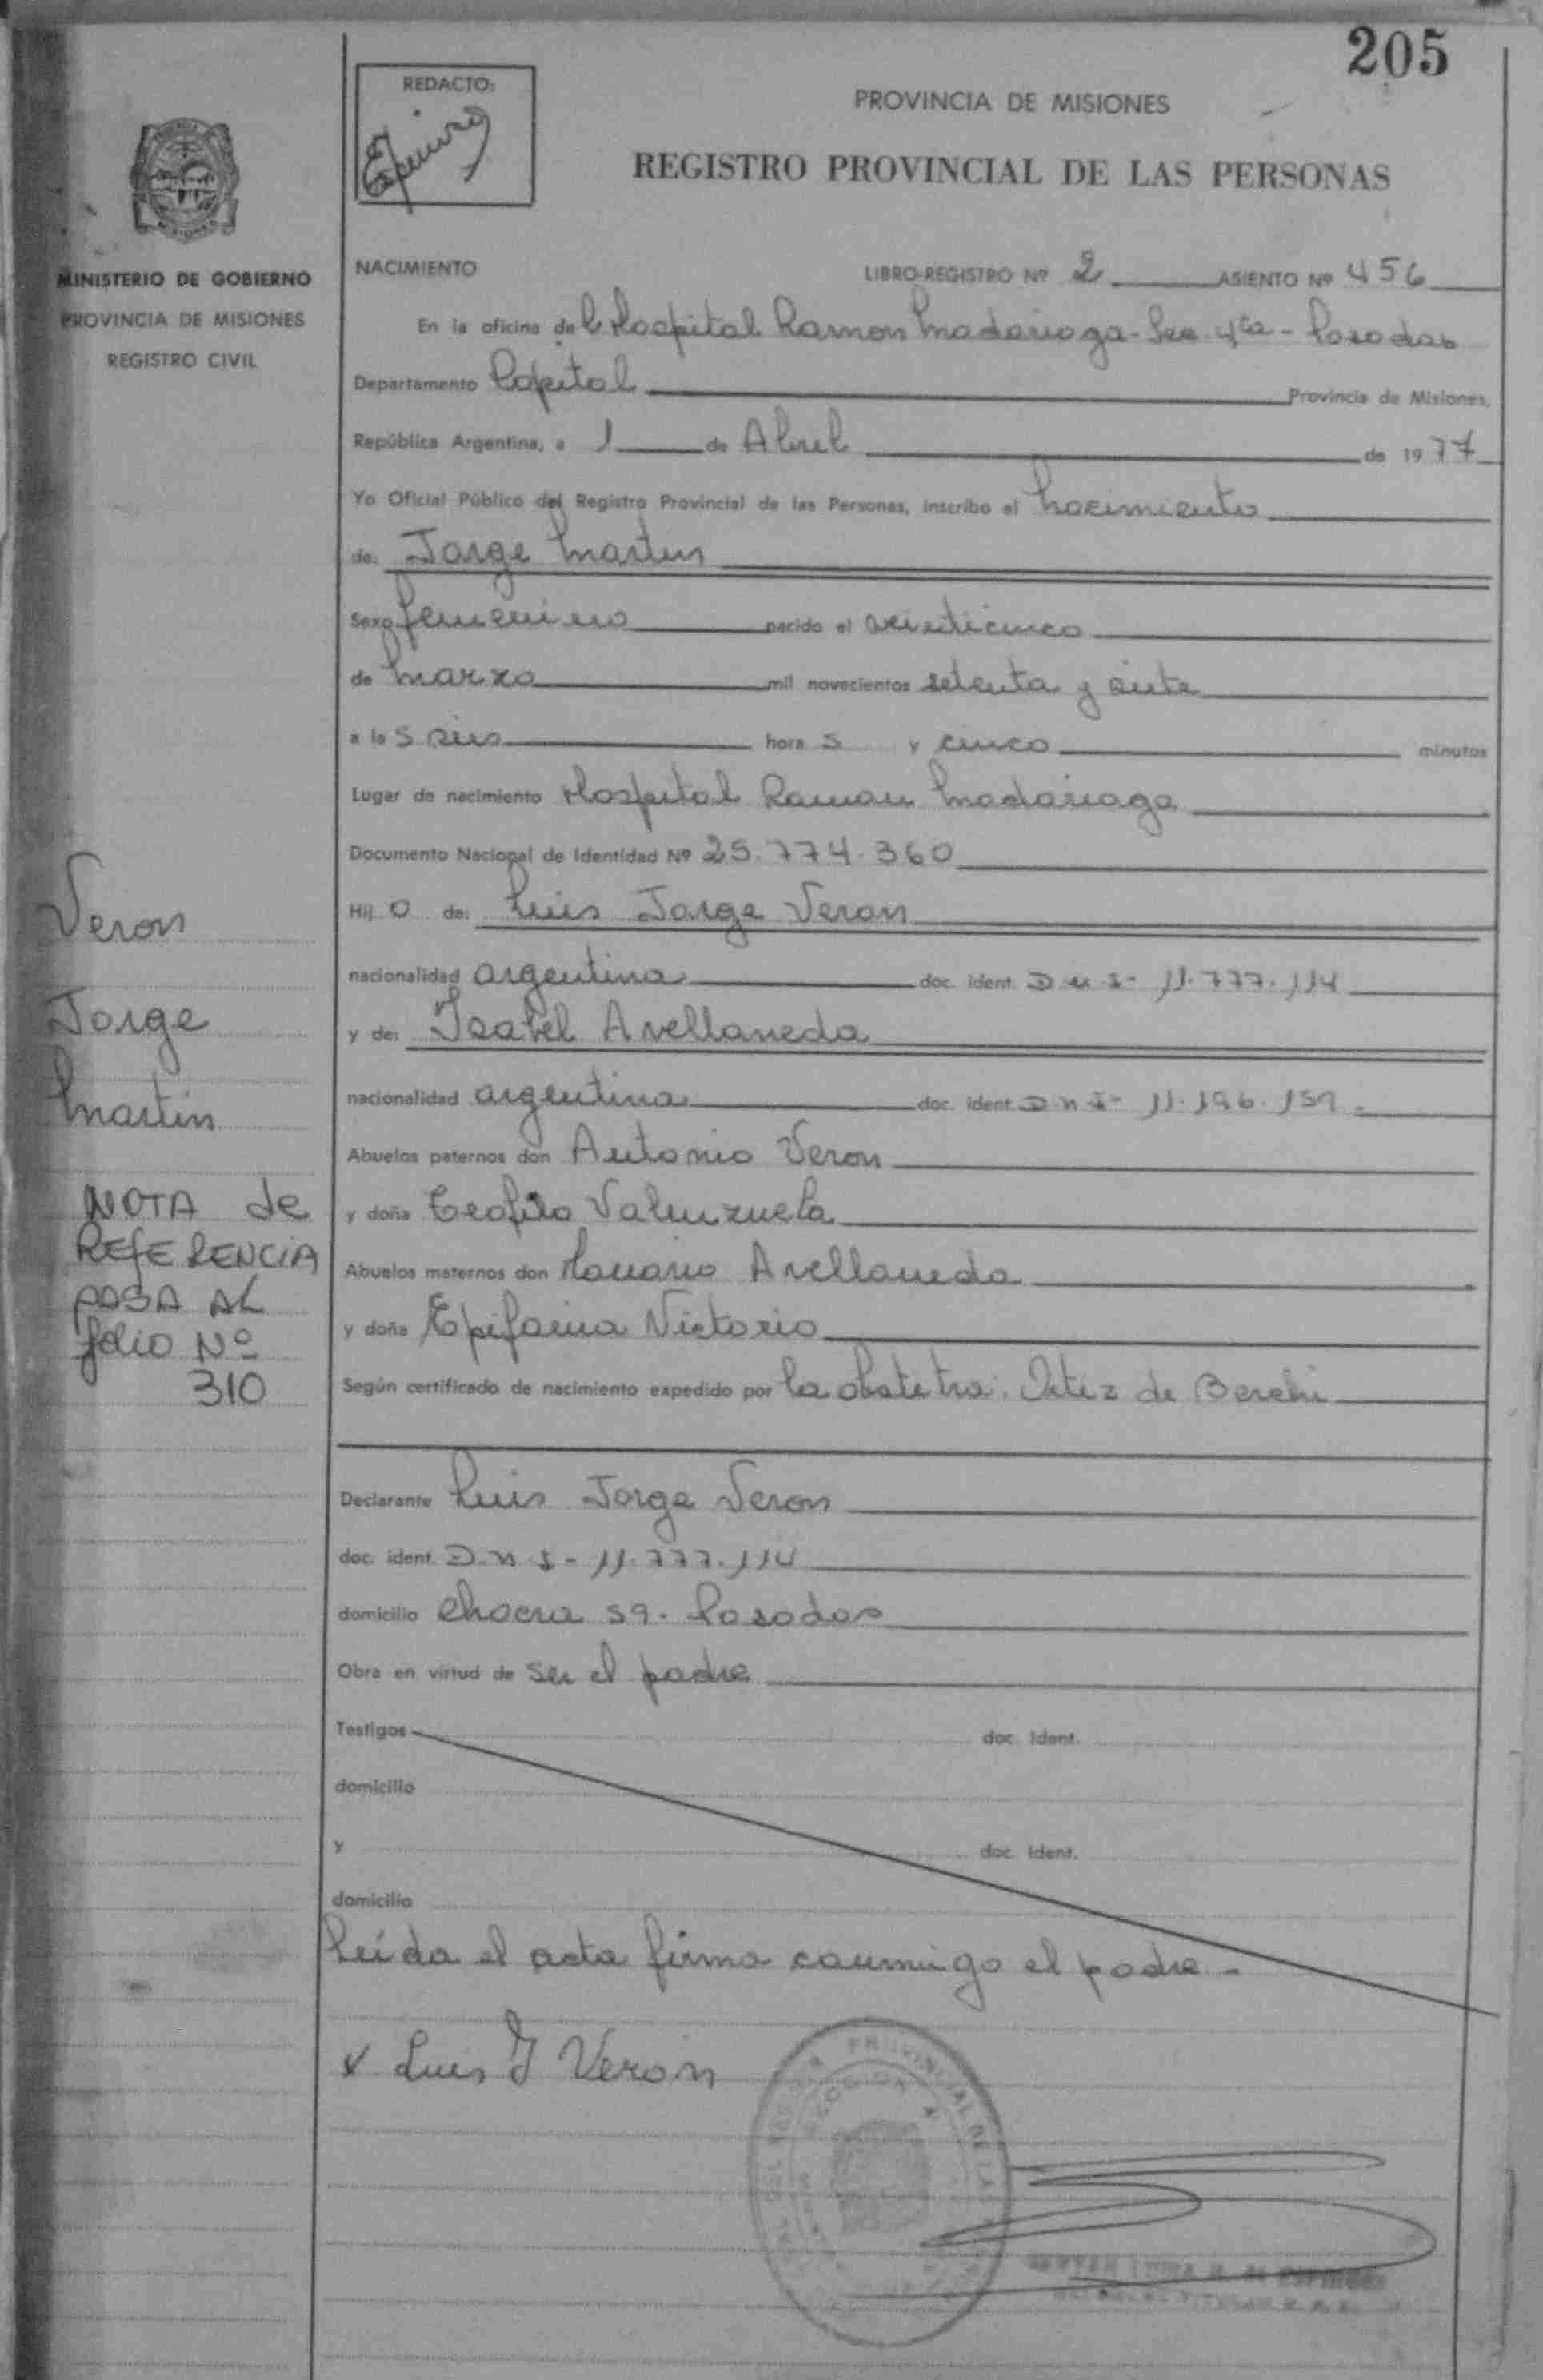 205
REDACTO:
PROVINCIA DE MISIONES
REGISTRO PROVINCIAL DE LAS PERSONAS
MINISTERIO DE GOBIERNO
PROVINCIA DE MISIONES
REGISTRO CIVIL
NACIMIENTO LIBRO-REGISTRO Nº 2 ASIENTO Nº 456
En la oficina del Hospital Ramon Madariaga - Sec 4ta - Posadas
Departamento Capital Provincia de Misiones,
República Argentina, a 1 de Abril de 1977
Yo Oficial Público del Registro Provincial de las Personas, inscribo el Nacimiento
de: Jorge Martin
Sexo femenino nacido el veinticinco
de Marzo mil novecientos setenta y siete
a las seis horas y cinco minutos
Lugar de nacimiento Hospital Ramon Madariaga
Documento Nacional de Identidad Nº 25.774.360
Hijo de: Luis Jorge Veron
nacionalidad argentina doc. ident. D n i - 11.777.114
y de: Isabel Avellaneda
nacionalidad argentina doc. ident. D n i - 11.196.159.
Abuelos paternos don Antonio Veron
y doña Valenzuela
Abuelos maternos don Avellaneda
y doña Epifania Victorio
Según certificado de nacimiento expedido por la obstetra: Ortiz de
Declarante Luis Jorge Veron
doc. ident. D.n i - 11.777.114
domicilio Chacra 59. Posadas
Obra en virtud de ser el padre
Testigos doc. Ident.
domicilio
y doc. Ident.
domicilio
Leída el acta firma conmigo el padre -
x Luis J Veron
Veron
Jorge
Martin
NOTA de
REFERENCIA
PASA AL
folio Nº
310